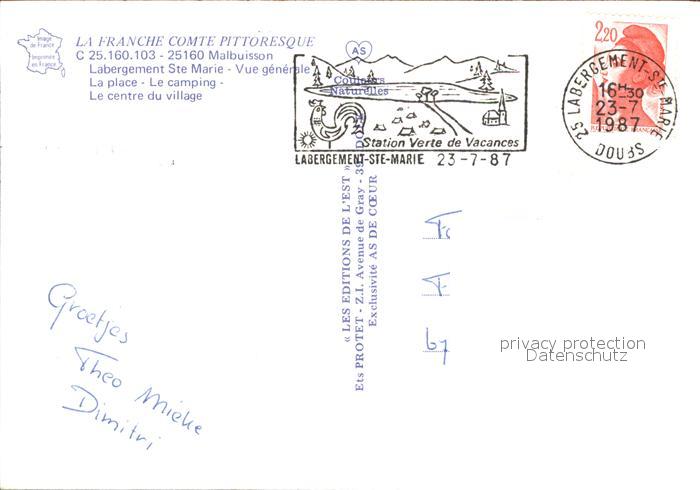 Image
de France
Imprimée
en France
LA FRANCHE COMTE PITTORESQUE
C 25.160.103 - 25160 Malbuisson
Labergement Ste Marie - Vue générale
La place - Le camping -
Le centre du village
AS
Couleurs
Naturelles
Station Verte de Vacances
LABERGEMENT-STE-MARIE 23-7-87
2,20
25 LABERGEMENT-STE-MARIE
16H30
23-7
1987
DOUBS
« LES EDITIONS DE L'EST »
Ets PROTET - Z.I. Avenue de Gray - 39 DOLE
Exclusivité AS DE CŒUR
Groetjes
Theo Mieke
Dimitri
privacy protection
Datenschutz